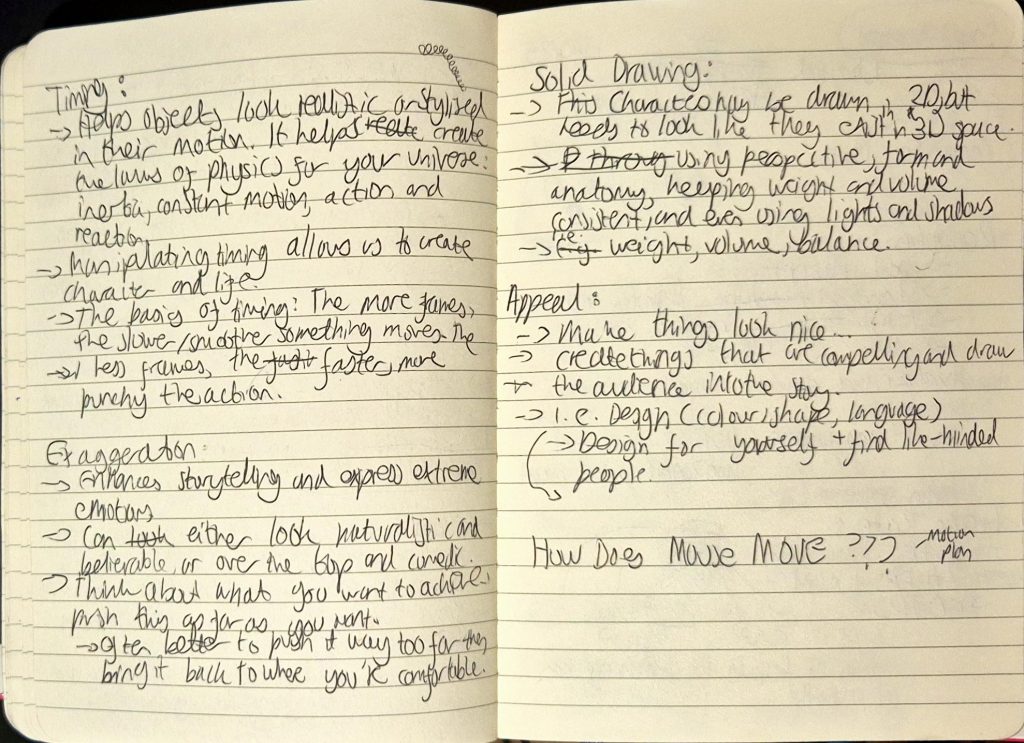 Timing:
-> Helps objects look realistic or stylised
in their motion. It helps create create
the laws of physics for your universe:
inertia, constant motion, action and
reaction.
-> Manipulating timing allows us to create
character and life.
-> The basics of timing: The more frames,
the slower/smoother something moves. The
-> less frames, the fast faster, more
punchy the action.
Exaggeration:
-> Enhances storytelling and express extreme
emotions
-> Can look either look naturalistic and
believable, or over the top and comedic.
-> Think about what you want to achieve,
push this as far as you want.
-> Often better to push it way too far then
bring it back to where you're comfortable.
Solid Drawing:
-> This Character may be drawn in 2D, but
needs to look like they exist in 3D space.
-> through using perspective, form and
anatomy, keeping weight and volume
consistent, and even using lights and shadows
-> e.g. i.e. weight, volume, balance.
Appeal:
-> Make things look nice...
-> create things that are compelling and draw
the audience into the story.
-> i.e. Design (colour, shape, language)
-> Design for yourself + find like-minded
people.
HOW DOES MOUSE MOVE ???
motion
plan